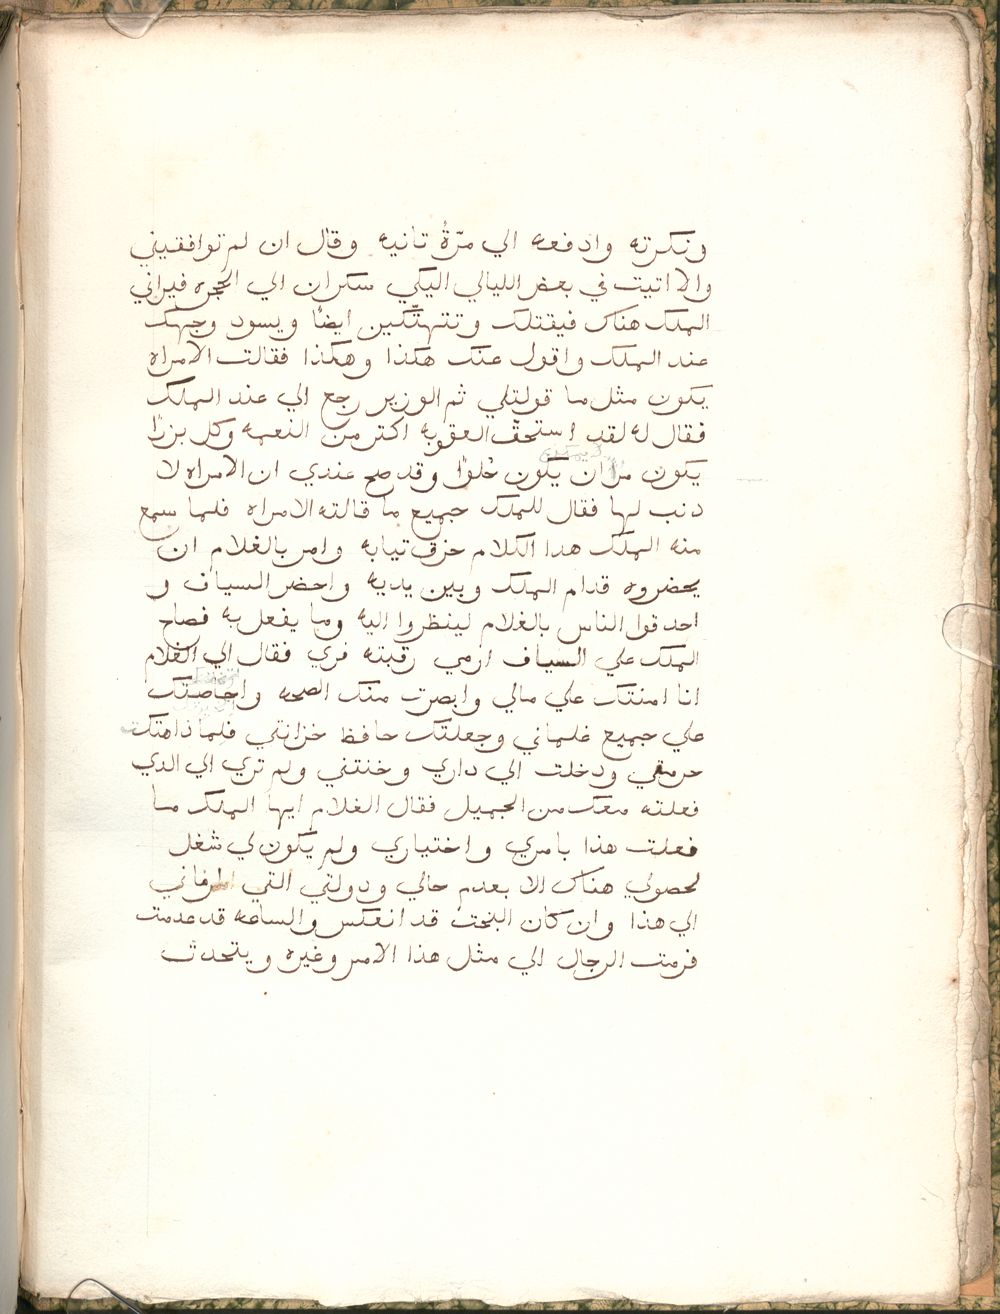 ونكرته وادفعه الي مرّةُ تانيه وقال ان لم توافقيني
والا اتيت في بعض الليالي اليكي سكران الي الحجره فيراني
الملك هناك فيقتلك وتتهتّكين ايضًا ويسود وجهك
عند الملك واقول عنك هكذا وهكذا فقالت الامراه
يكون مثل ما قولتلي ثم الوزير رجع الي عند الملك
فقال له لقد استحقّ العقوبه اكتر من النعمه وكل بزرًا
يكون مرًا ان يكون حُلوًا وقد صح عندي ان الامراه لا
دنب لها فقال للملك جميع ما قالته الامراه فلما سمع
منه الملك هدا الكلام حزق تيابه وامر بالغلام ان
يحضروه قدام الملك وبين يديه واحضر السياف و
احدقوا الناس بالغلام لينظروا اليه وما يفعل به فصاح
الملك علي السياف ارمي رقبته فري فقال الي الغلام
انا امنتك علي مالي وابصرت منك الصحه واخاصتك
علي جميع غلماني وجعلتك حافظ خزانتي فلماذا هتكت
حرمتي ودخلت الي داري وخنتني ولم تري الي الدي
فعلته معك من الجميل فقال الغلام ايها الملك ما
فعلت هذا بامري واختياري ولم يكون لي شغل
لحصولي هناك الا بعدم حالي ودولتي التي
الي هذا وان كان البخت قد انعكس والساعه قد عدمت
فرمت الرجال الي مثل هذا الامر وغيره ويتحدث